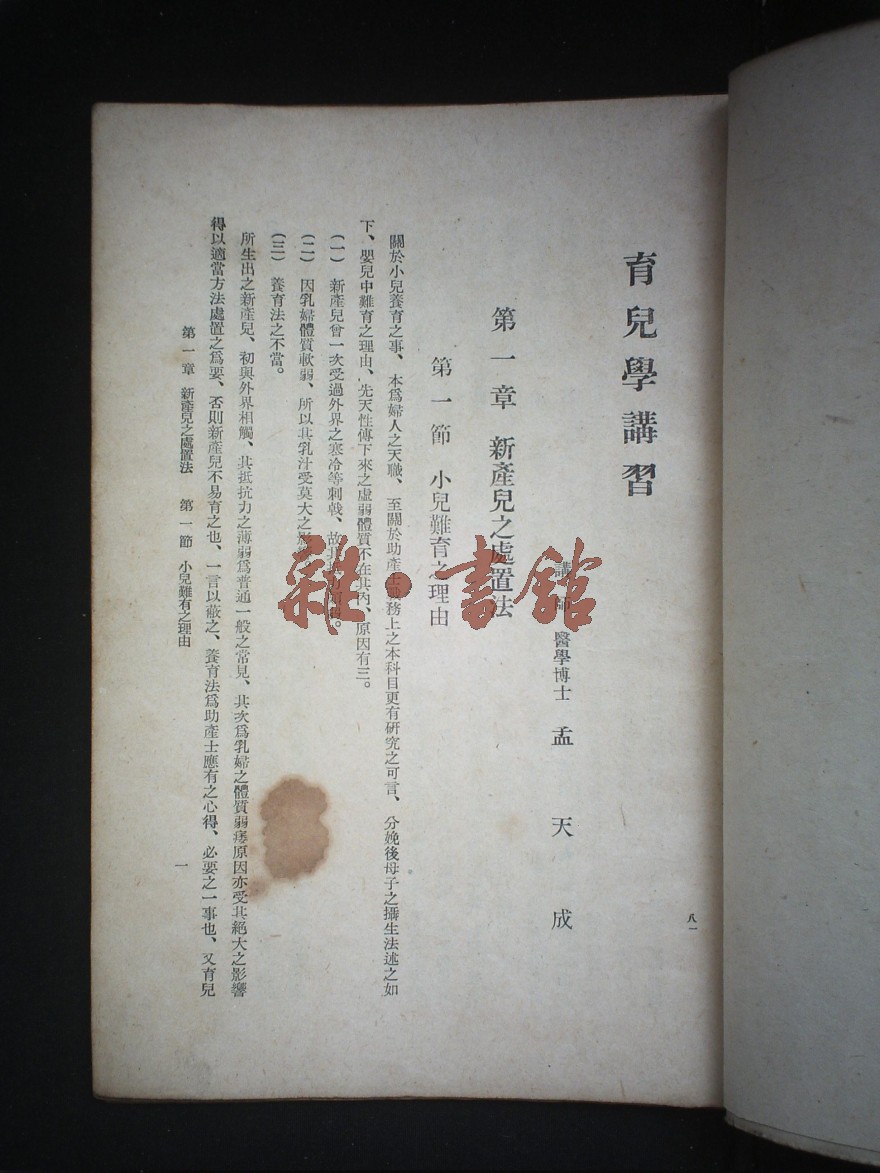 育兒學講習
講師　醫學博士　孟天成
第一章　新產兒之處置法
第一節　小兒難育之理由
關於小兒養育之事、本爲婦人之天職、至關於助產士職務上之本科目更有研究之可言、分娩後母子之攝生法述之如
下、嬰兒中難育之理由、先天性傳下來之虛弱體質不在其內、原因有三。
(一)　新產兒曾一次受過外界之寒冷等刺戟、故其
(二)　因乳婦體質軟弱、所以其乳汁受莫大之影
(三)　養育法之不當。
所生出之新產兒、初與外界相觸、其抵抗力之薄弱爲普通一般之常見、其次爲乳婦之體質弱痿原因亦受其絕大之影響
得以適當方法處置之爲要、否則新產兒不易育之也、一言以蔽之、養育法爲助產士應有之心得、必要之一事也、又育兒
第一章　新產兒之處置法　第一節　小兒難有之理由
一
八一
雜·書館